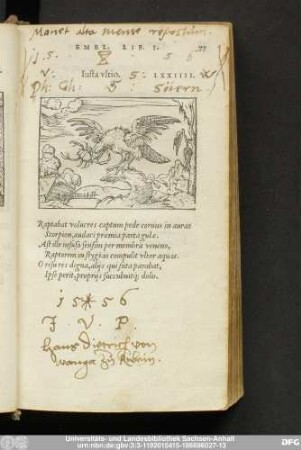 Manet alta mente repostum.
EMBL. LIB. I.
15. 5. 5 6
V: Iusta vltio. 5: LXXIIII.
Ph: Gh: 5:
Raptabat volucres captum pede coruus in auras
Scorpion, audaci præmia parta gulæ.
Ast ille infuso sensim per membra veneno,
Raptorem in stygias compulit vltor aquas.
O risu res digna, alijs qui fata parabat,
Ipse perit, proprijs succubuitq; dolis.
15 56
F. V. P.
Hans Dietrich von
zu
Universitäts- und Landesbibliothek Sachsen-Anhalt
urn:nbn:de:gbv:3:3-1192015415-186696027-13
DFG